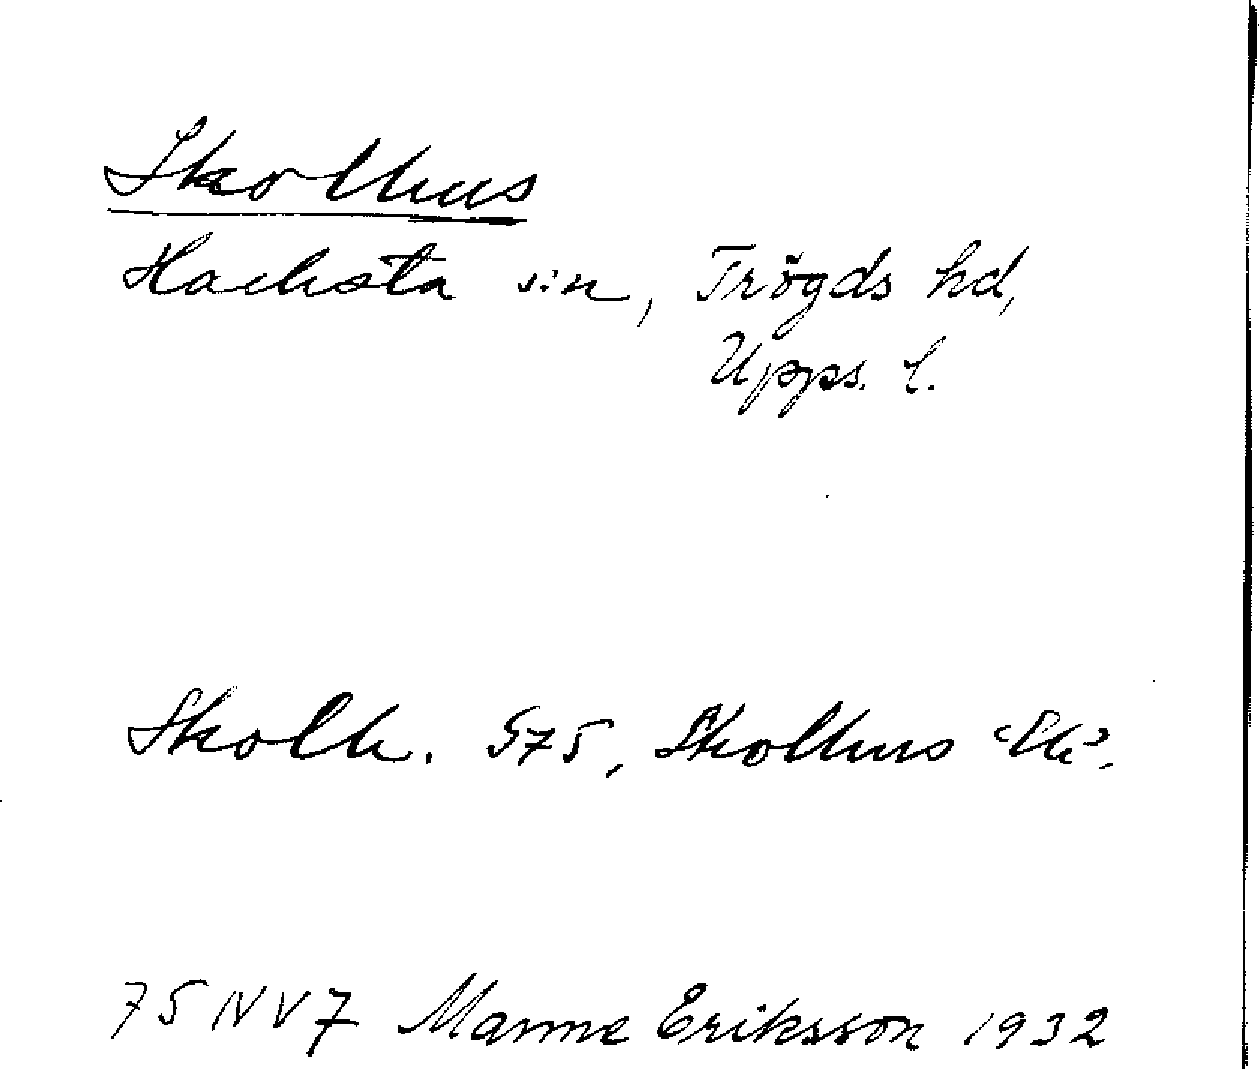 Skolhus
Hacksta s:n, Trögds hd,
Upps. l.
Skolh. S75, Skolhus
75 NV 7 Manne Eriksson 1932